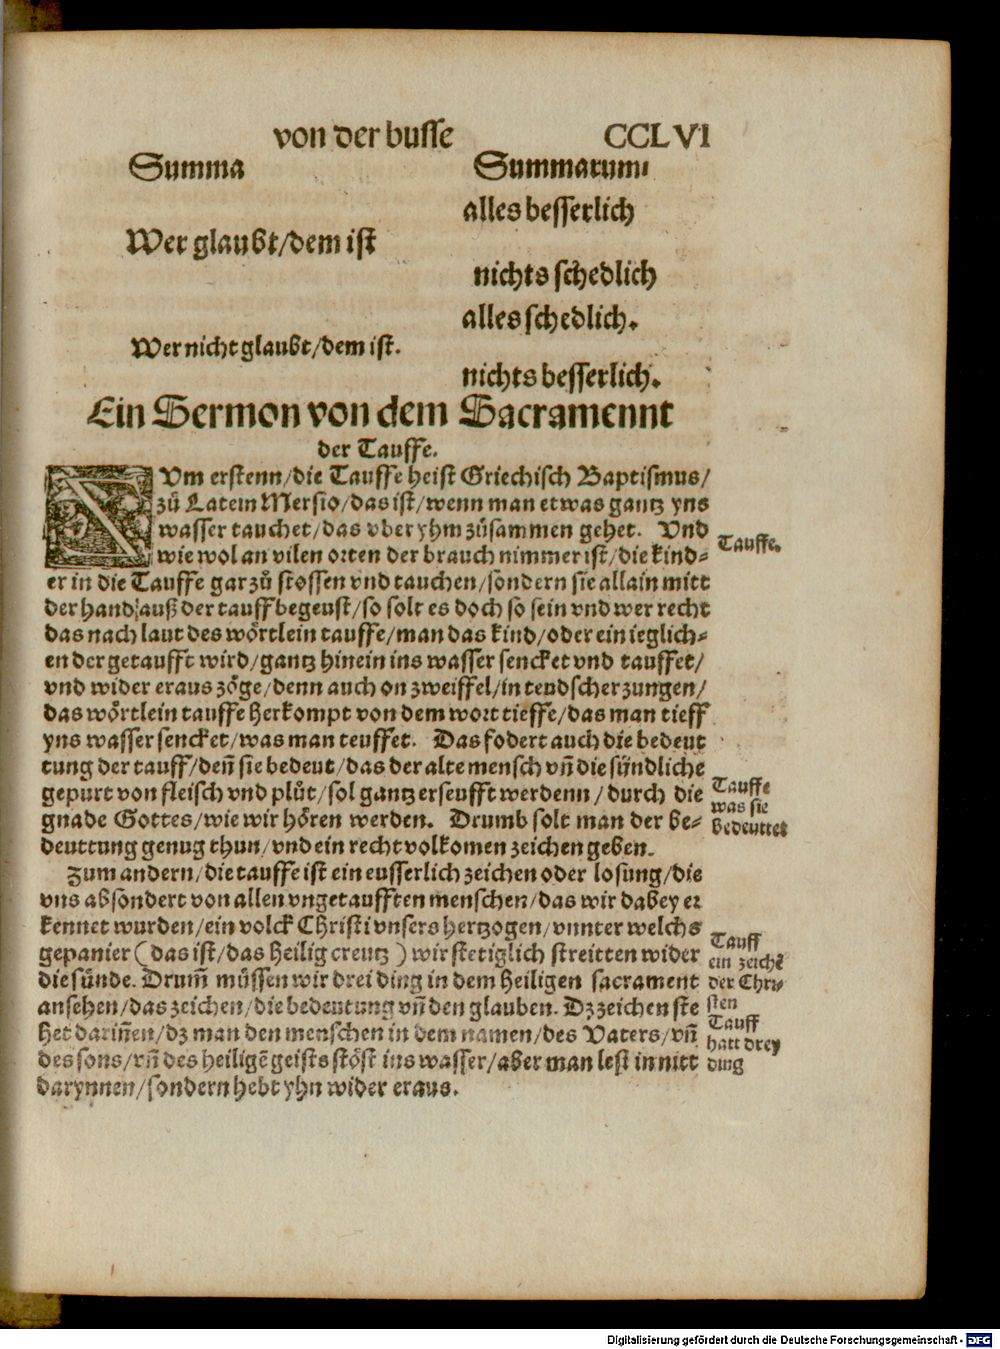 von der busse CCLVI
Summa Summarum
alles besserlich
Wer glaubt/dem ist
nichts schedlich
alles schedlich.
Wer nicht glaubt/dem ist.
nichts besserlich.
Ein Sermon von dem Sacramennt
der Tauffe.
ZUm erstenn/die Tauffe heist Griechisch Baptismus/
zů Latein Mersio/das ist/wenn man etwas gantz yns
wasser tauchet/das vber yhm zůsammen gehet. Vnd
Tauffe.
wie wol an vilen orten der brauch nimmer ist/die kind⸗
er in die Tauffe gar zů stossen vnd tauchen/sondern sie allain mitt
der hand/auß der tauff begeust/so solt es doch so sein vnd wer recht
das nach laut des wörtlein tauffe/man das kind/oder ein ieglich⸗
en der getaufft wird/gantz hinein ins wasser sencket vnd tauffet/
vnd wider eraus zöge/denn auch on zweiffel/in teudscher zungen/
das wörtlein tauffe herkompt von dem wort tieffe/das man tieff
yns wasser sencket/was man teuffet. Das fodert auch die bedeut
tung der tauff/deñ sie bedeut/das der alte mensch vñ die sündliche
gepurt von fleisch vnd plůt/sol gantz erseufft werdenn/durch die
Tauffe
was sie
bedeuttet
gnade Gottes/wie wir hören werden. Drumb solt man der be⸗
deuttung genug thun/vnd ein recht volkomen zeichen geben.
Zum andern/die tauffe ist ein eusserlich zeichen oder losung/die
vns absondert von allen vngetaufften menschen/das wir dabey er
kennet wurden/ein volck Christi vnsers hertzogen/vnnter welchs
gepanier (das ist/das heilig creutz) wir stetiglich streitten wider
Tauff
ein zeichē
der Chri⸗
sten
die sünde. Drum̃ müssen wir drei ding in dem heiligen sacrament
ansehen/das zeichen/die bedeutung vñ den glauben. Dz zeichen ste
het dariñen/dz man den menschen in dem namen/des Vaters/vñ
Tauff
hatt drey
ding
des sons/vñ des heiligē geists stöst ins wasser/aber man lest in nitt
darynnen/sondern hebt yhn wider eraus.
Digitalisierung gefördert durch die Deutsche Forschungsgemeinschaft - DFG